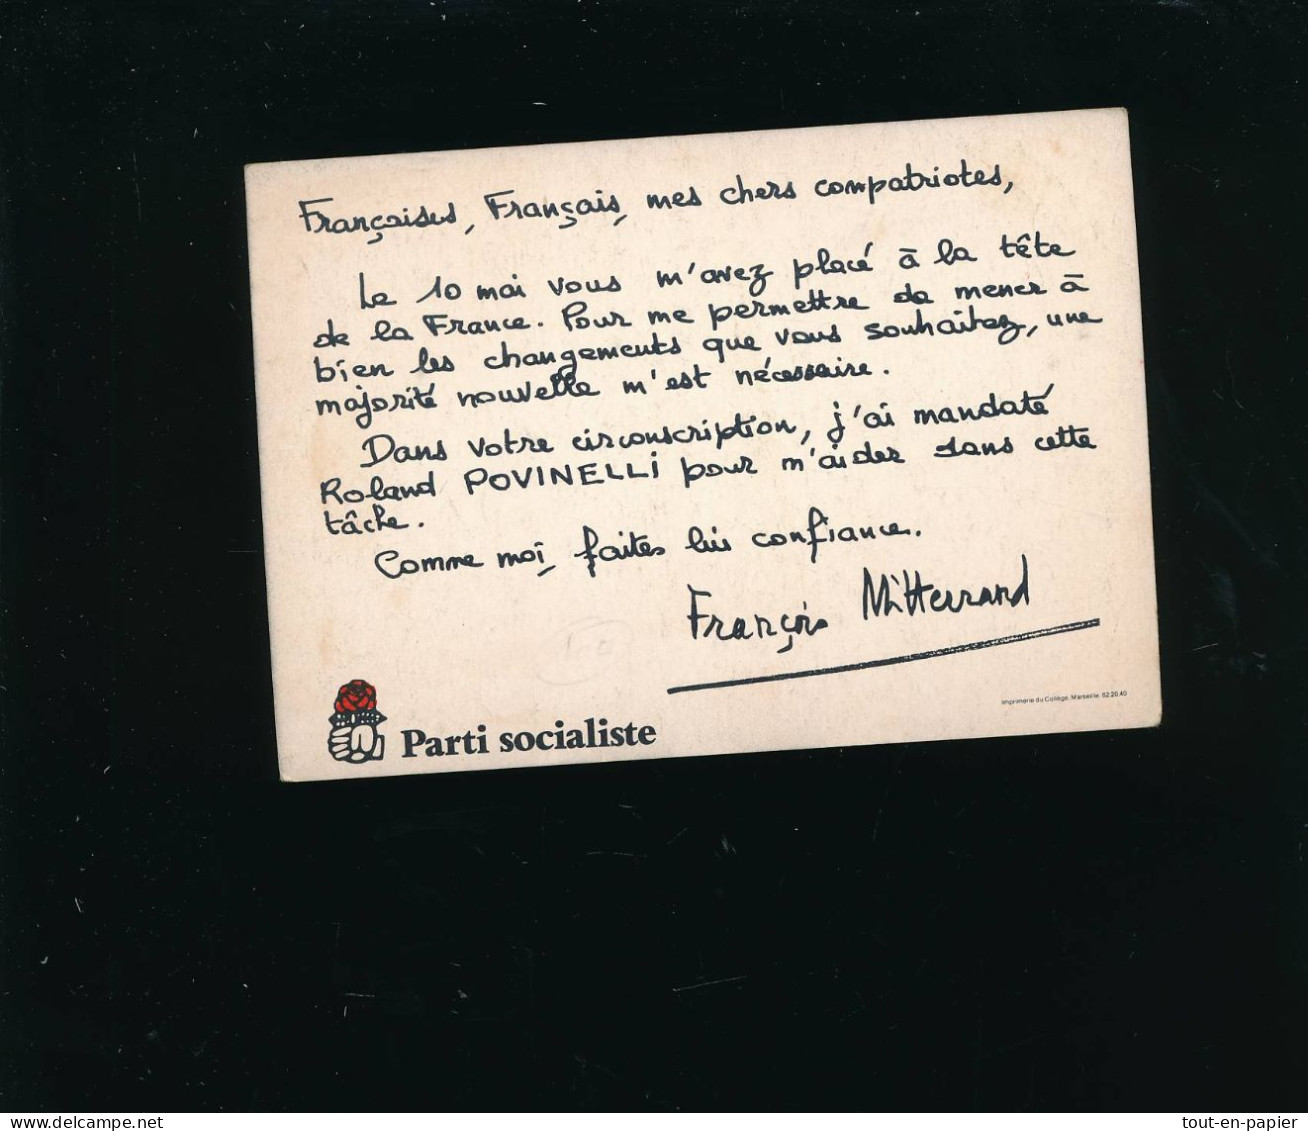 Françaises, Français, mes chers compatriotes,
Le 10 mai vous m'avez placé à la tête
de la France. Pour me permettre de mener à
bien les changements que vous souhaitez, une
majorité nouvelle m'est nécessaire.
Dans votre circonscription, j'ai mandaté
Roland POVINELLI pour m'aider dans cette
tâche.
Comme moi, faites lui confiance.
François Mitterrand
Imprimerie du Collège, Marseille. 62.20.40
Parti socialiste
delcampe.net
tout-en-papier